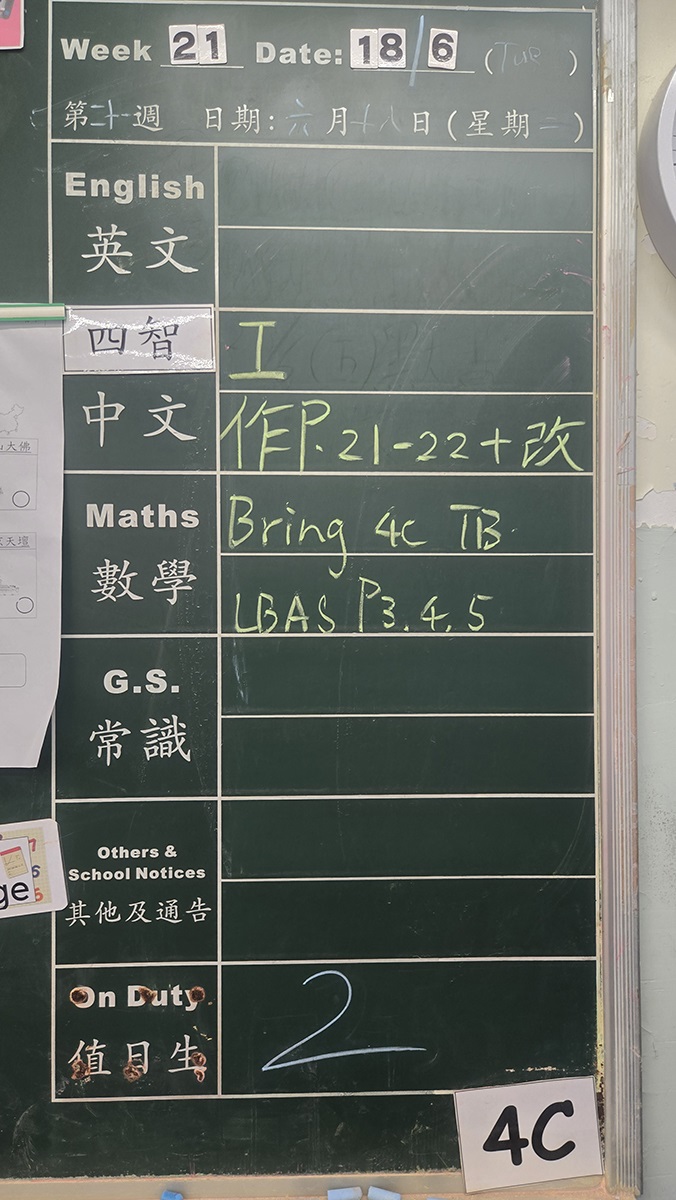 Week 21 Date: 18/6 (Tue)
第二十週 日期:六月十八日(星期二)
English
英文
四智
工
中文
作P.21-22+改
Maths
Bring 4C TB
數學
LBAS P3.4.5
G.S.
常識
Others &
School Notices
其他及通告
On Duty
值日生
2
4C
山大佛
天壇
ge